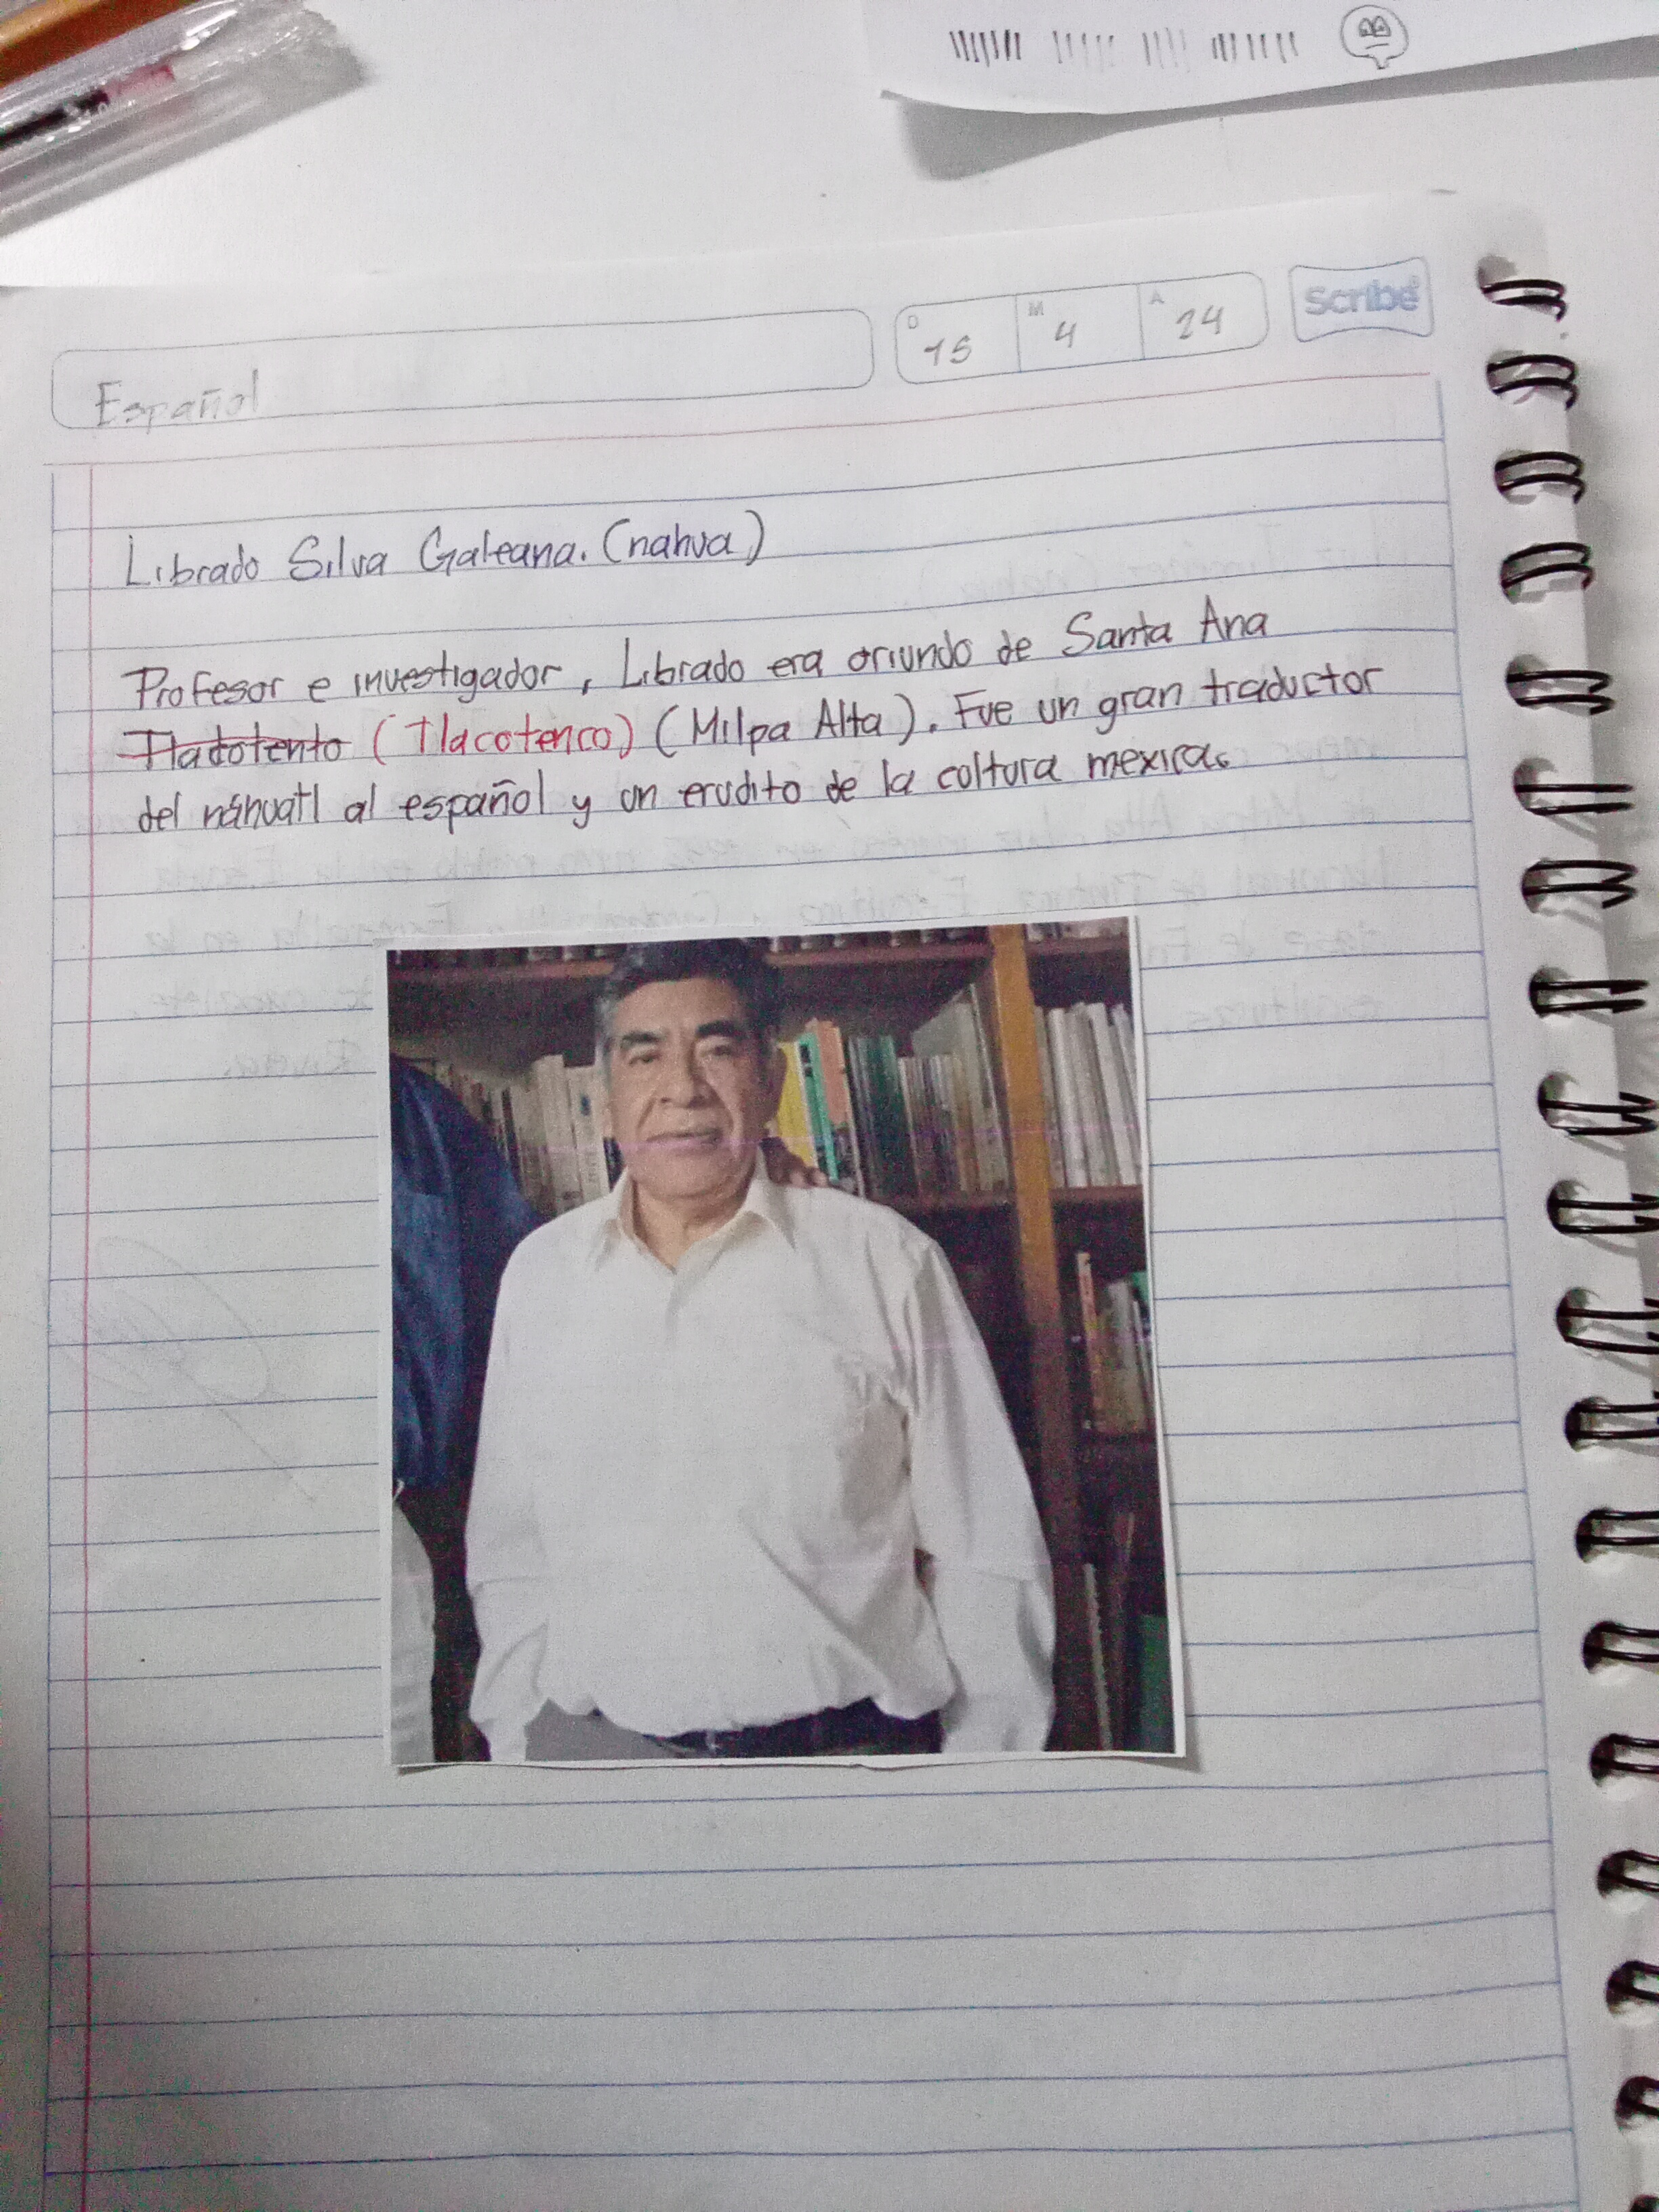 Español
D 15 M 4 A 24
Scribe
Librado Silva Galeana. (nahua)
Profesor e investigador, Librado era oriundo de Santa Ana
Tladotento (Tlacotenco) (Milpa Alta). Fue un gran traductor
del náhuatl al español y un erudito de la cultura mexica.